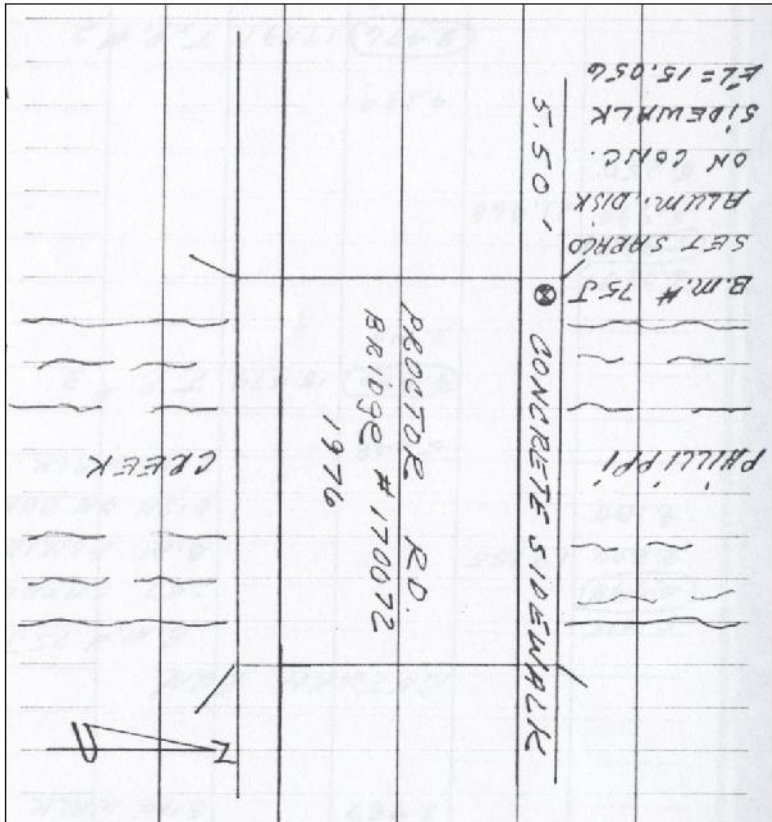 B.M. # 75J
SET SARACO
ALUM. DISK
ON CONC.
SIDEWALK
EL = 15.056
5.50'
CONCRETE SIDEWALK
PROCTOR RD.
BRIDGE # 170072
1976
PHILLIPPI
CREEK